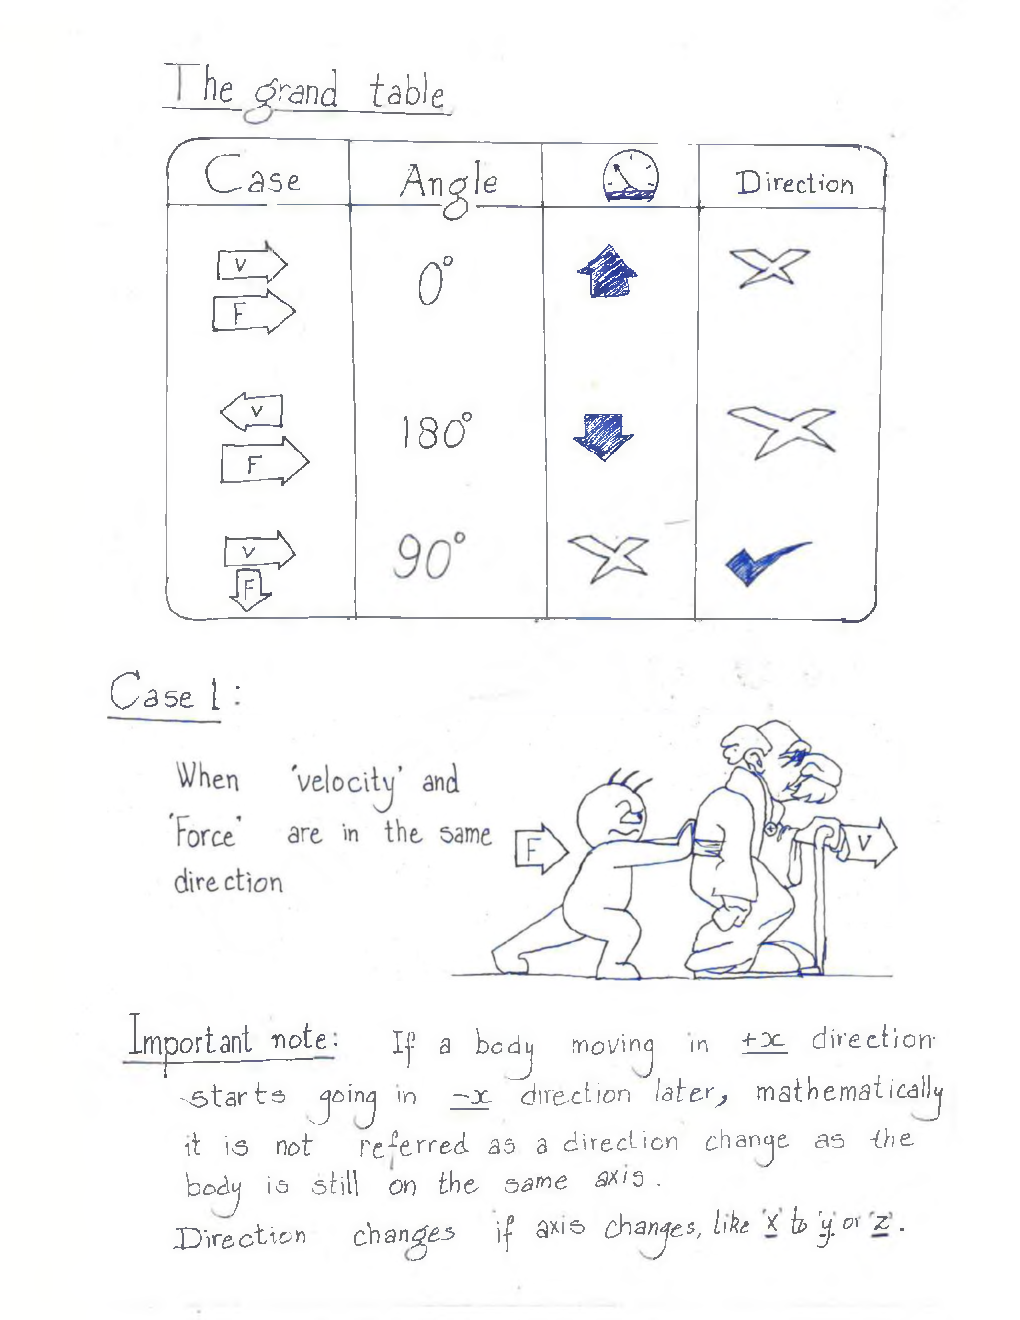 The grand table
Case Angle Direction
V
F
0°
V
F
180°
V
F
90°
Case 1:
When 'velocity' and
'Force' are in the same
direction
F
V
Important note: If a body moving in +x direction
starts going in -x direction later, mathematically
it is not referred as a direction change as the
body is still on the same axis.
Direction changes if axis changes, like 'x' to 'y' or 'z'.